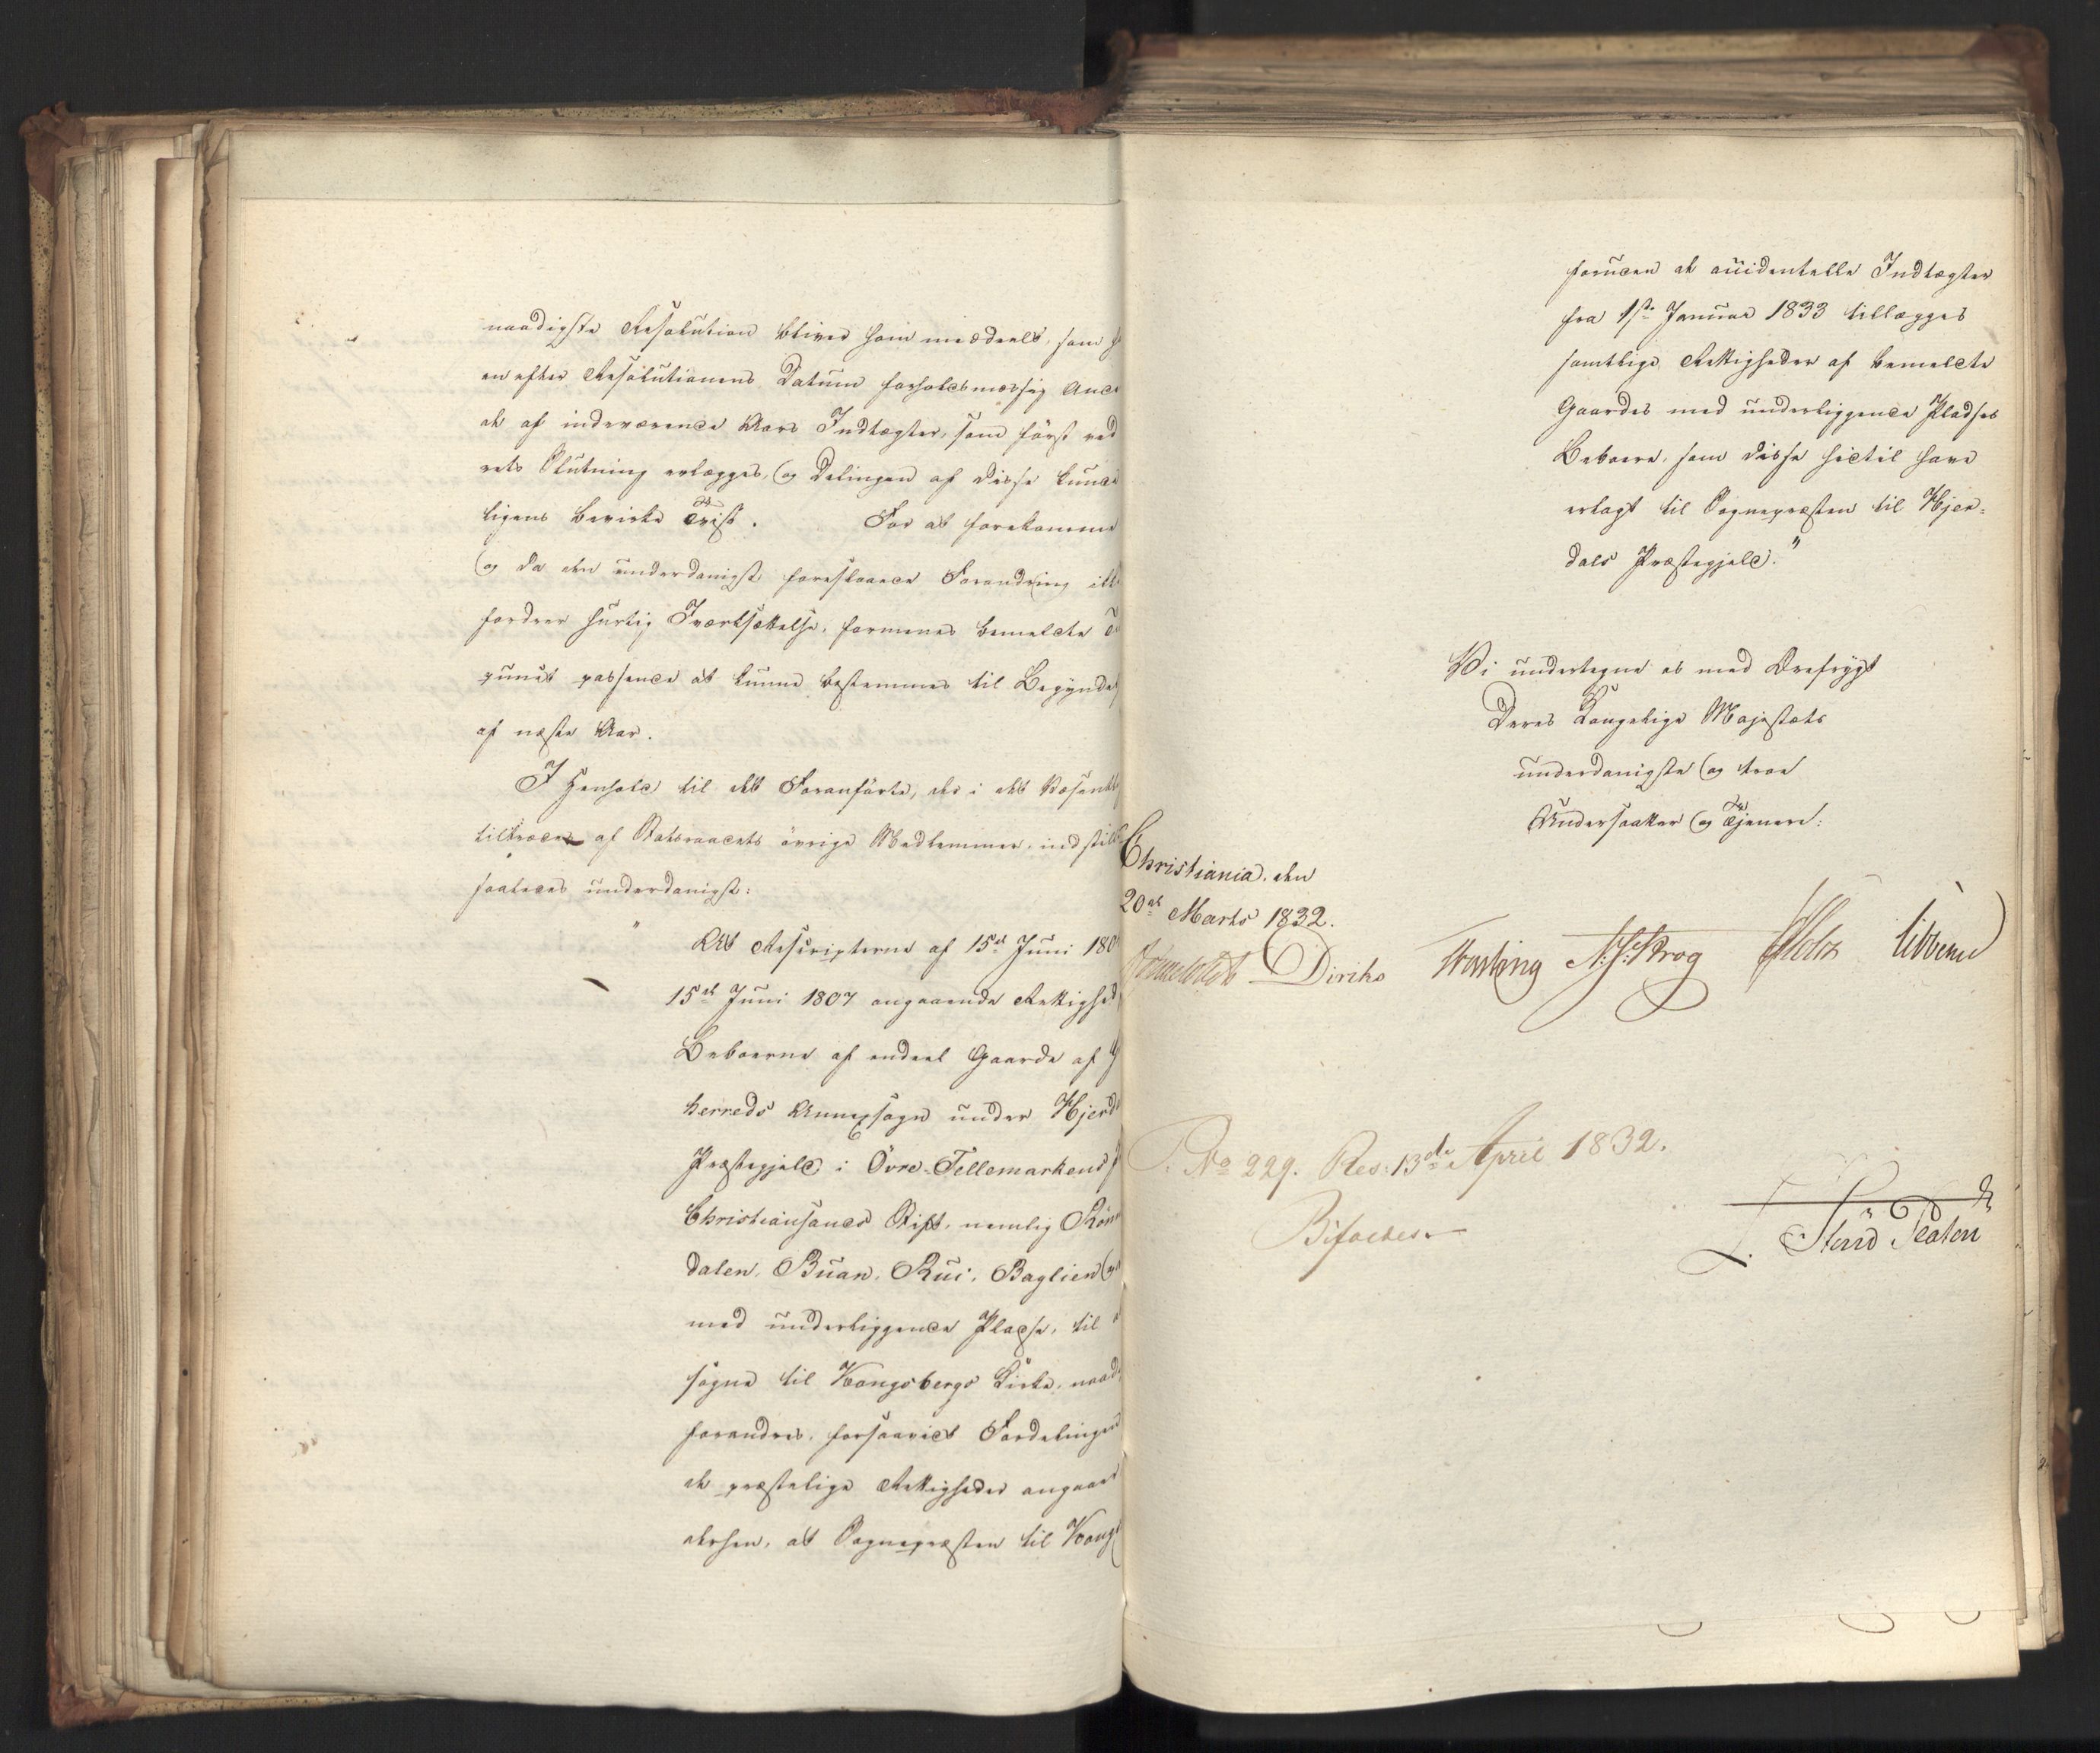 naadigste Resolution bliver ham meddeelt, som
en efter Resolutionens Datum forholdsmæssig
de af indeværende Aars Indtægter, som först ved
rets Slutning erlægges, og Delingen af disse kunde
ligens bevirke Tvist. For at forekomme
og da den underdanigst foreslaaede Forandring
fordrer hurtig Iværksættelse, formenes bemeldte
punct passende at kunne bestemmes til Begyndel
af næste Aar.
I Henhold til det Foranförte, der i det Væsentl
tiltrædes af Statsraadets övrige Medlemmer, indstill
saaledes underdanigst:
"At Rescripterne af 15de Juni 180
15de Juni 1807 angaaende Rettighed
Beboerne af endeel Gaarde af
herreds Annexsogn under Hjerd
Præstegjeld i Övre-Tellemarkens
Christiansands Stift, nemlig
dalen, Buan, Rui, Baglien og
med underliggende Pladse, til
sogne til Kongsbergs Kirke, naad
forandres, forsaavidt Fordelingen
de præstelige Rettigheder angaae
derhen, at Sognepræsten til Kongs
foruden de accidentelle Indtægter
fra 1ste Januar 1833 tillægges
samtlige Rettigheder af bemeldte
Gaardes med underliggende Pladses
Beboere, som disse hidtil have
erlagt til Sognepræsten til Hjer=
dals Præstegjeld."
Vi undertegne os med Ærefrygt
Deres Kongelige Majestæts
underdanigste og troe
Undersaatter og Tjenere:
Christiania, den
20de Marts 1832.
Diriks N. J. Krog Holst
No 229. Res: 13de April 1832.
Bifaldes.